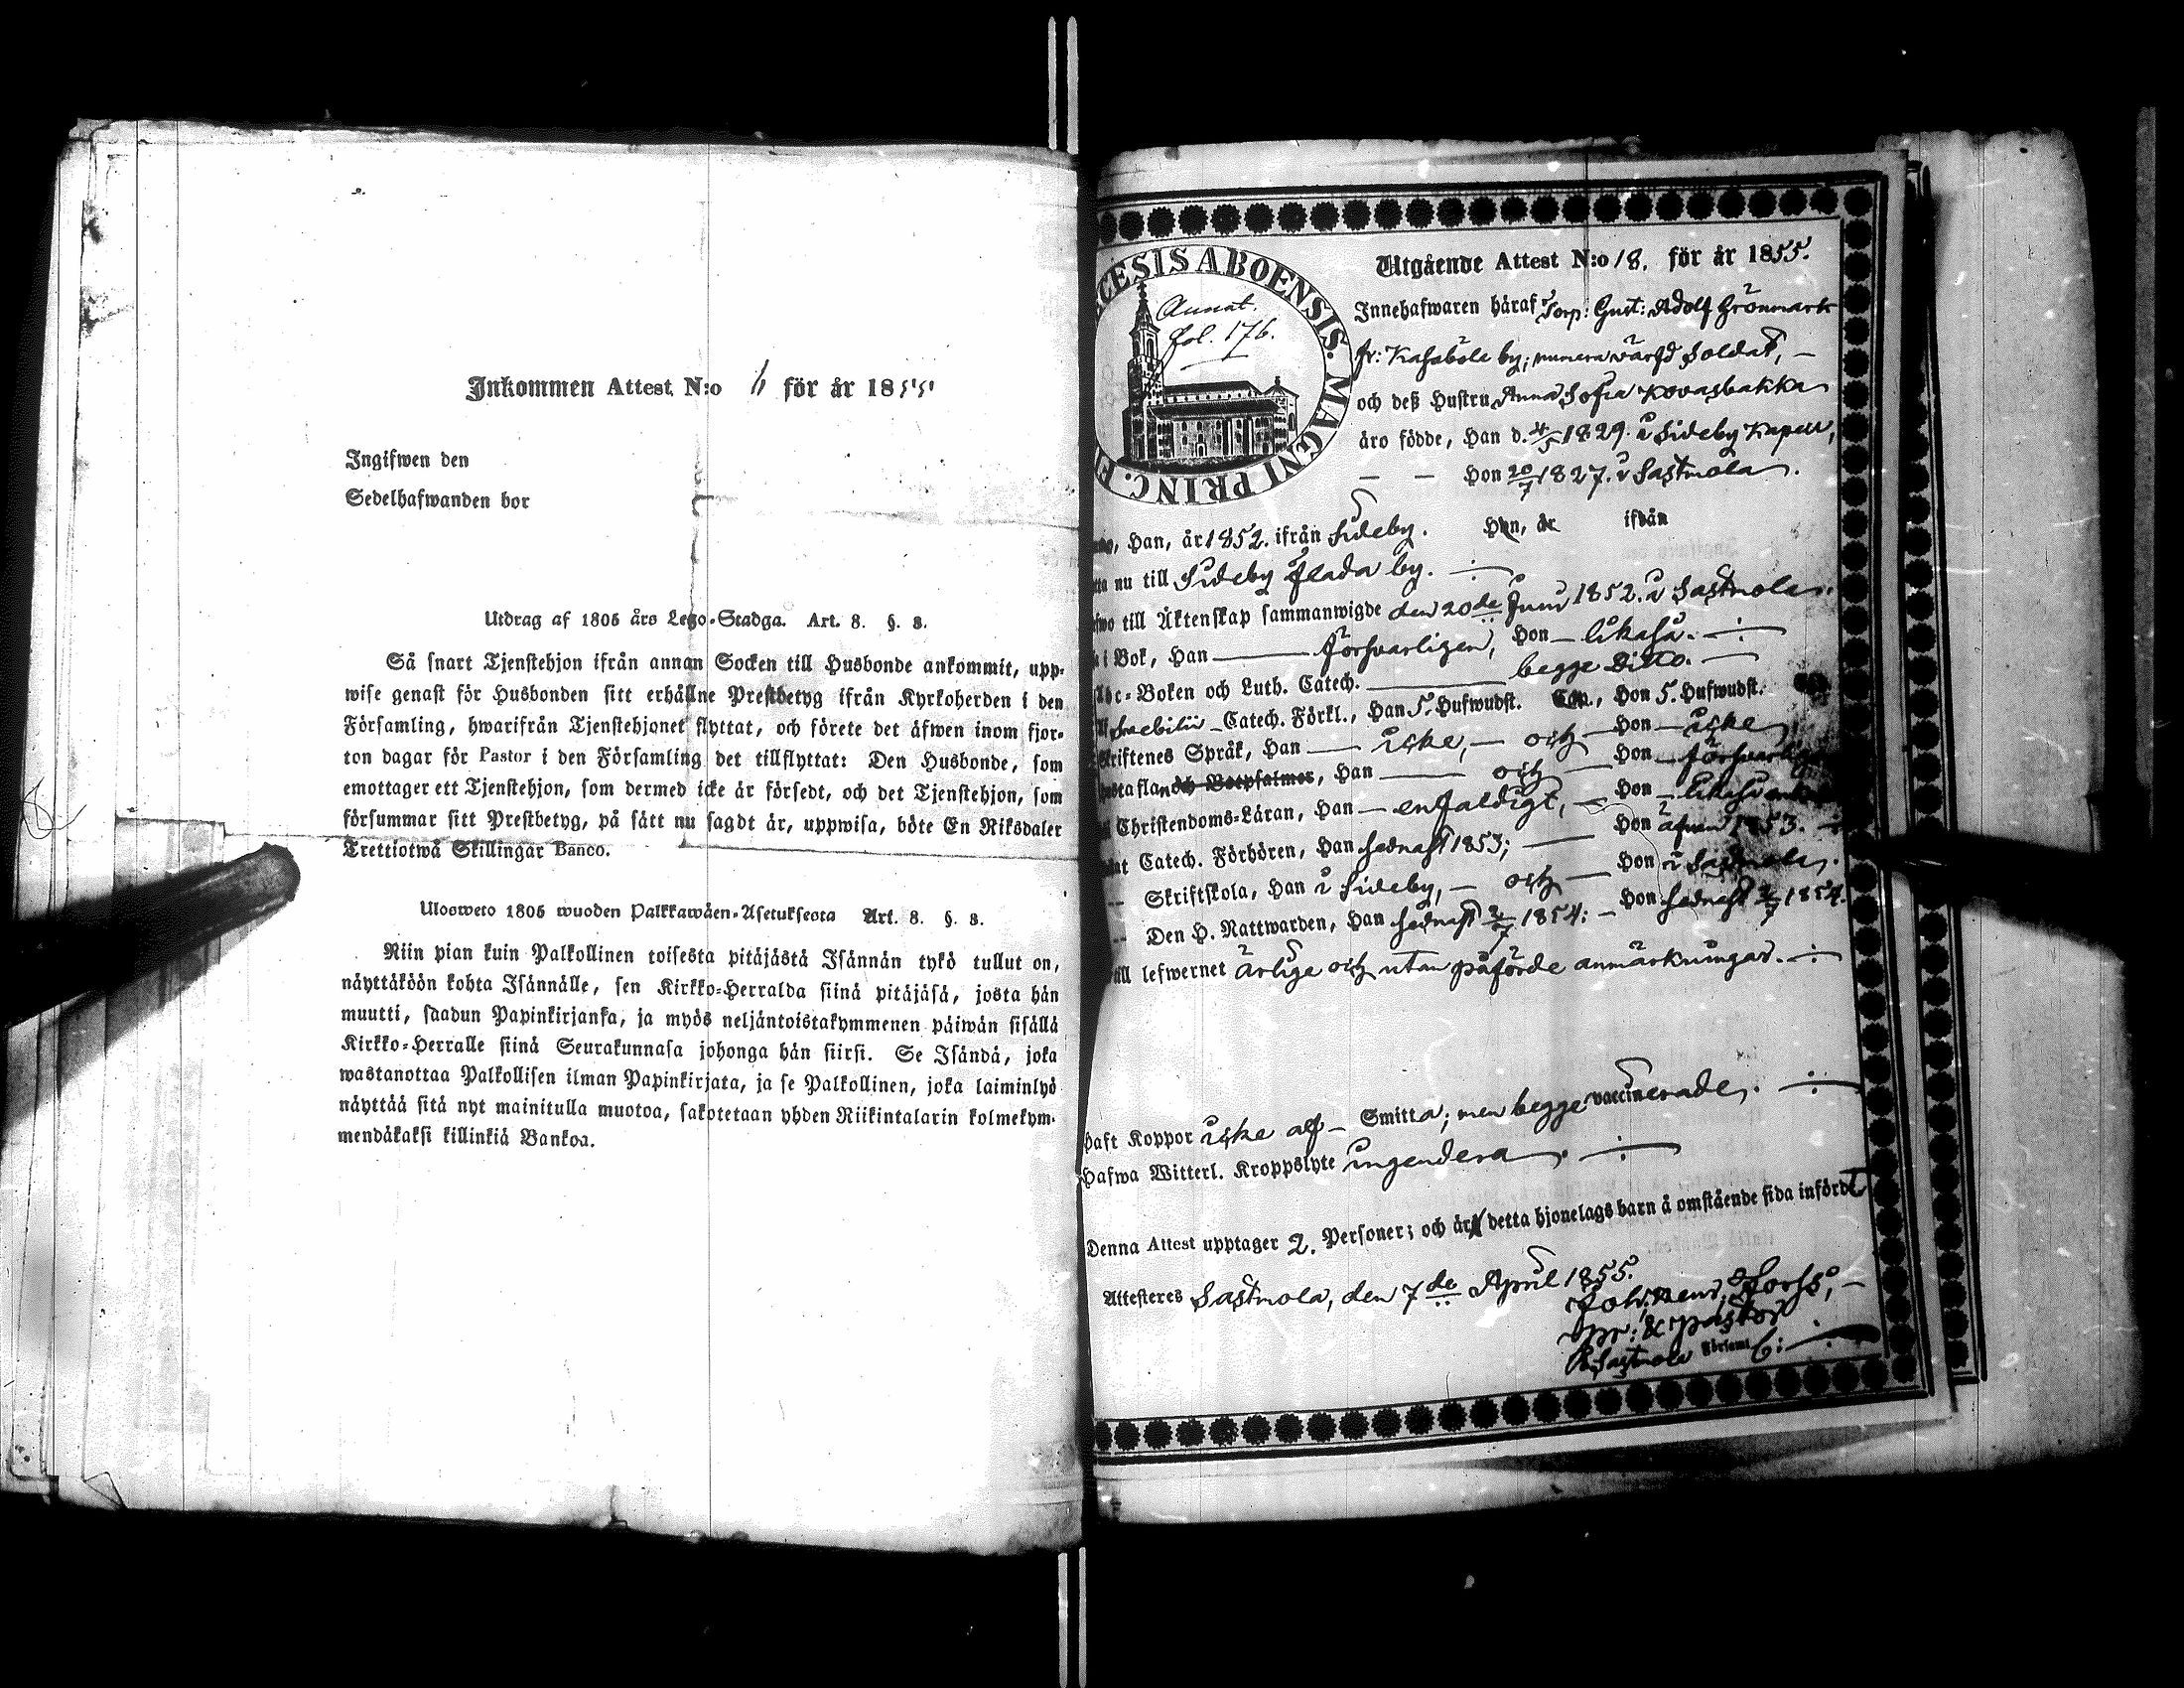 Inkommen Attest N:o 6 för år 1855
Ingifwen den
Sedelhafwanden bor
Utdrag af 1805 års Lego-Stadga. Art. 8. §. 8.
Så snart Tjenstehjon ifrån annan Socken till Husbonde ankommit, upp-
wise genast för Husbonden sitt erhållne Prestbetyg ifrån Kyrkoherden i den
Församling, hwarifrån Tjenstehjonet flyttat, och förete det äfwen inom fjor-
ton dagar för Pastor i den Församling det tillflyttat: Den Husbonde, som
emottager ett Tjenstehjon, som dermed icke är försedt, och det Tjenstehjon, som
försummar sitt Prestbetyg, på sätt nu sagdt är, uppwisa, böte En Riksdaler
Trettiotwå Skillingar Banco.
Ulosweto 1805 wuoden Palkkawäen-Asetuksesta Art. 8. §. 8.
Niin pian kuin Palkollinen toisesta pitäjästä Isännän tykö tullut on,
näyttäköön kohta Isännälle, sen Kirkko-Herralda siinä pitäjäsä, josta hän
muutti, saadun Papinkirjansa, ja myös neljäntoistakymmenen päiwän sisällä
Kirkko-Herralle siinä Seurakunnasa johonga hän siirsi. Se Isändä, joka
wastanottaa Palkollisen ilman Papinkirjata, ja se Palkollinen, joka laiminlyö
näyttää sitä nyt mainitulla muotoa, sakotetaan yhden Riikintalarin kolmekym-
mendäkaksi killinkiä Bankoa.
CESIS ABOENSIS. MAGNI PRINC. F
Annat.
fol. 176.
Utgående Attest N:o 18. för år 1855.
Innehafwaren häraf Torp: Gust: Adolf Grönmark
fr: Kasaböle by; numera värfd Soldat, –
och deß Hustru Anna Sofia Kovasbakka
äro födde, Han d. 4/5 1829. i Sideby Kapell,
– – Hon 20/7 1827. i Sastmola.
Han, år 1852. ifrån Sideby. Hon, år ifrån
nu till Sideby Flada by. –
till Äktenskap sammanwigde den 20de Junii 1852. i Sastmola.
i Bok, Han – försvarligen, Hon – likaså. –
Abc-Boken och Luth. Catech. – begge Ditto. –
Svebilii – Catech. Förkl., Han 5. Hufwudst. Hon 5. Hufwudst.
Skriftenes Språk, Han – icke, – och – Hon – icke
Hustaflan och Botpsalmer, Han – och – Hon – försvarligen
Christendoms-Läran, Han – enfaldigt, – Hon – likaså
Catech. Förhören, Han sednast 1853; – Hon äfven 1853. –
Skriftskola, Han i Sideby, – och – Hon i Sastmola.
Den H. Nattwarden, Han sednast 2/7 1854: – Hon sednast 2/7 1854.
till lefwernet ärlige och utan påförde anmärkningar. –
Haft Koppor icke af – Smitta; men begge vaccinerade. –
Hafwa Witterl. Kroppslyte ingendera. –
Denna Attest upptager 2. Personer; och är detta hjonelags barn å omstående sida infördt
Attesteres Sastmola, den 7de April 1855.
Joh: Henr: Forss, –
Vpr: & Pastor
Sastmola Församl